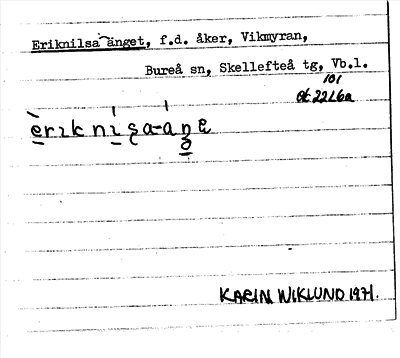 Eriknilsa änget, f.d. åker, Vikmyran,
Bureå sn, Skellefteå tg, Vb.l.
101
eriknisa-aŋe
KARIN WIKLUND 1971.